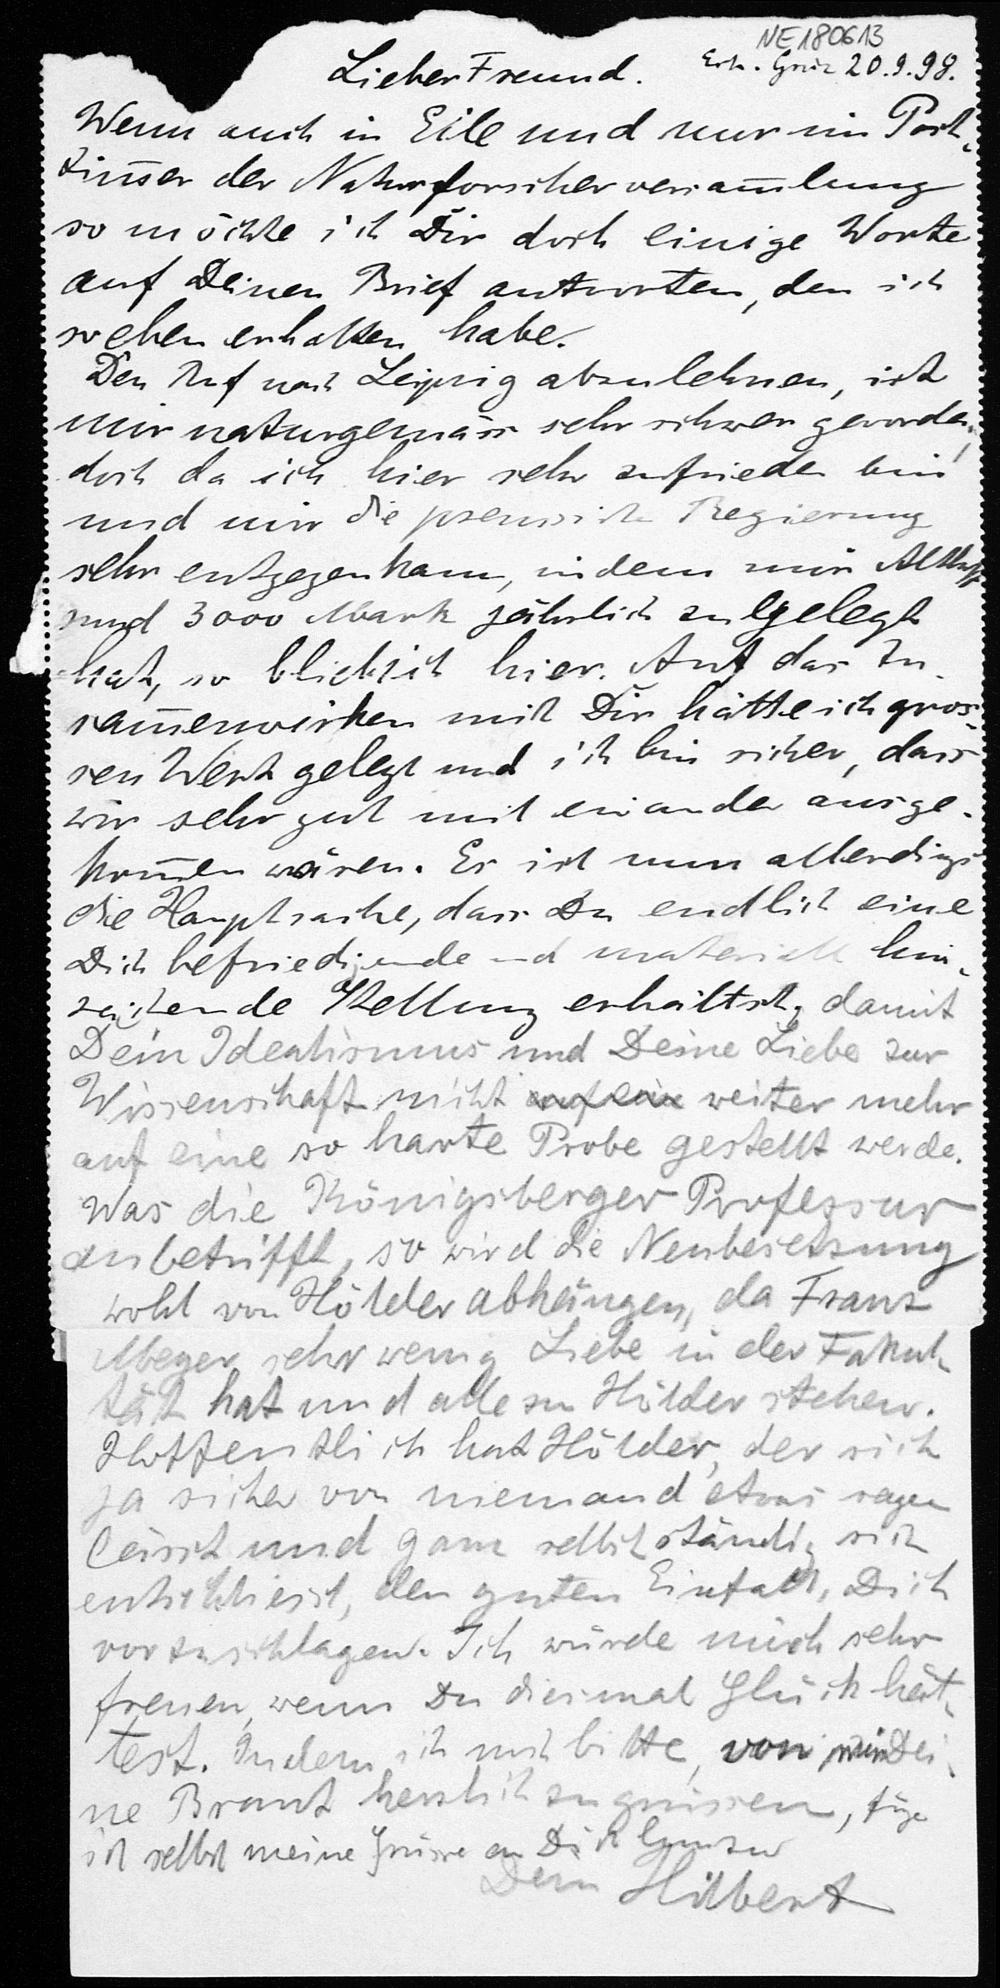 NE180613
Lieber Freund. Erh. Graz 20.9.98.
Wenn auch in Eile und nur im Post-
zim̅er der Naturforscherversam̅lung
so möchte ich Dir doch einige Worte
auf Deinen Brief antworten, den ich
soeben erhalten habe.
Den Ruf nach Leipzig abzulehnen, ist
mir naturgemäss sehr schwer geworden,
doch da ich hier sehr zufrieden bin
und mir die preussische Regierung
sehr entgegenkam, indem mir Althoff
rund 3000 Mark jährlich zulgelegt
hat, so blieb ich hier. Auf das Zu-
sam̅enwirken mit Dir hätte ich gros-
sen Wert gelegt und ich bin sicher, dass
wir sehr gut mit einander ausge-
kom̅en wären. Es ist nun allerdings
die Hauptsache, dass Du endlich eine
Dich befriedigende und materiell hin-
reichende Stellung erhältst, damit
Dein Idealismus und Deine Liebe zur
Wissenschaft nicht auf eine weiter mehr
auf eine so harte Probe gestellt werde.
Was die Königsberger Professur
anbetrifft, so wird die Neubesetzung
wohl von Hölder abhängen, da Franz
Meyer sehr wenig Liebe in der Fakul-
tät hat und alle zu Hölder stehen.
Hoffentlich hat Hölder, der sich
ja sicher von niemand etwas sagen
lässt und ganz selbstständig sich
entschliesst, den guten Einfall, Dich
vorzuschlagen. Ich würde mich sehr
freuen, wenn Du diesmal Glück hät-
test. Indem ich noch bitte, von mir Dei-
ne Braut herzlich zu grüssen, füge
ich selbst meine Grüsse an Dich hinzu
Dein Hilbert